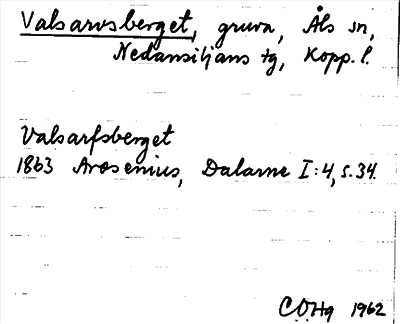 Valsarvsberget, gruva, Åls sn,
Nedansiljans tg, Kopp. l.
Valsarfsberget
1863 Arosenius, Dalarne I:4, s. 34.
COHg 1962